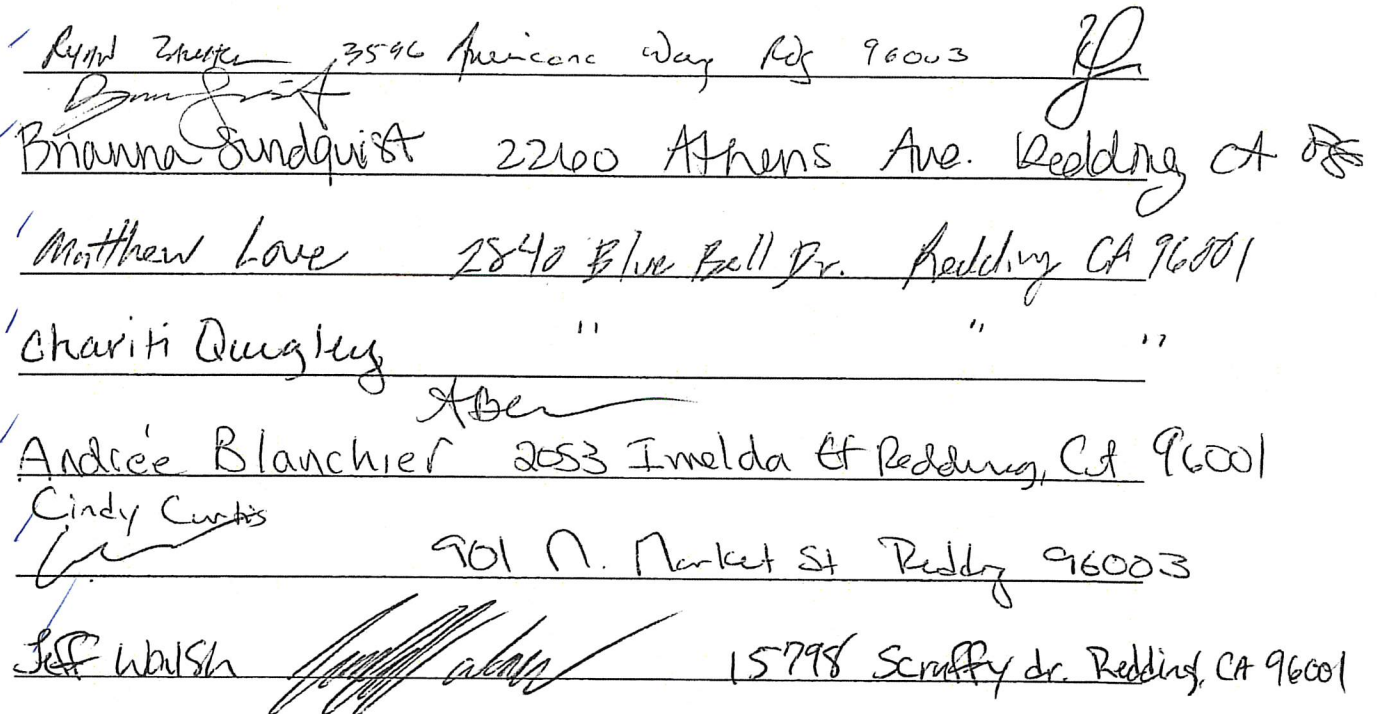 3596 Americana Way Rdg 96003
Brianna Sundquist 2260 Athens Ave. Redding CA
Matthew Love 2840 Blue Bell Dr. Redding CA 96001
Chariti Quigley " " "
Andrée Blanchier 2053 Imelda Ct Redding, CA 96001
Cindy Curtis
901 N. Market St Redding 96003
Jeff Walsh 15798 Scruffy dr. Redding, CA 96001